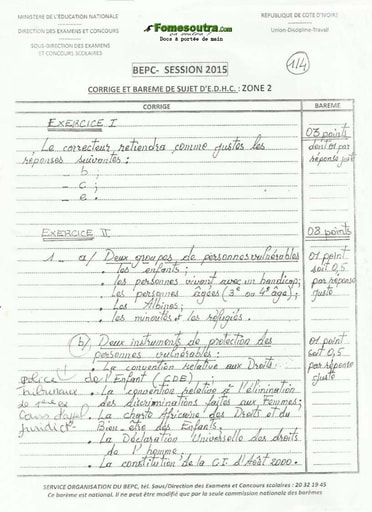 MINISTÈRE DE L'ÉDUCATION NATIONALE
DIRECTION DES EXAMENS ET CONCOURS
SOUS-DIRECTION DES EXAMENS
ET CONCOURS SCOLAIRES
Fomesoutra.com
Docs à portée de main
REPUBLIQUE DE COTE D'IVOIRE
Union-Discipline-Travail
1/4
BEPC- SESSION 2015
CORRIGE ET BAREME DE SUJET D'E.D.H.C. : ZONE 2
CORRIGE
BAREME
EXERCICE I
03 points
Le correcteur retiendra comme justes les
réponses suivantes :
_ b ;
_ c ;
_ e .
réponse juste
EXERCICE II
08 points
1_ a/ Deux groupes de personnes vulnérables
. les enfants ;
. les personnes vivant avec un handicap ;
. les personnes âgées (3e ou 4e âge) ;
. Les Albinos ;
. les minorités et les réfugiés .
01 point
soit 0,5
par réponse
juste
b/ Deux instruments de protection des
personnes vulnérables :
. La convention relative aux Droits
de l'Enfant (CDE) ;
. La convention relative à l'élimination
des discriminations faites aux Femmes ;
. La charte Africaine des Droits et du
Bien-être des Enfants .
. La Déclaration Universelle des droits
de l'homme .
. La constitution de la C.I d'Août 2000 .
01 point
soit 0,5
par réponse
juste
police
Tribunaux
Cour d'appel
SERVICE ORGANISATION DU BEPC, tél. Sous/Direction des Examens et Concours scolaires : 20 32 19 45
Ce barème est national. Il ne peut être modifié que par la seule commission nationale des barèmes